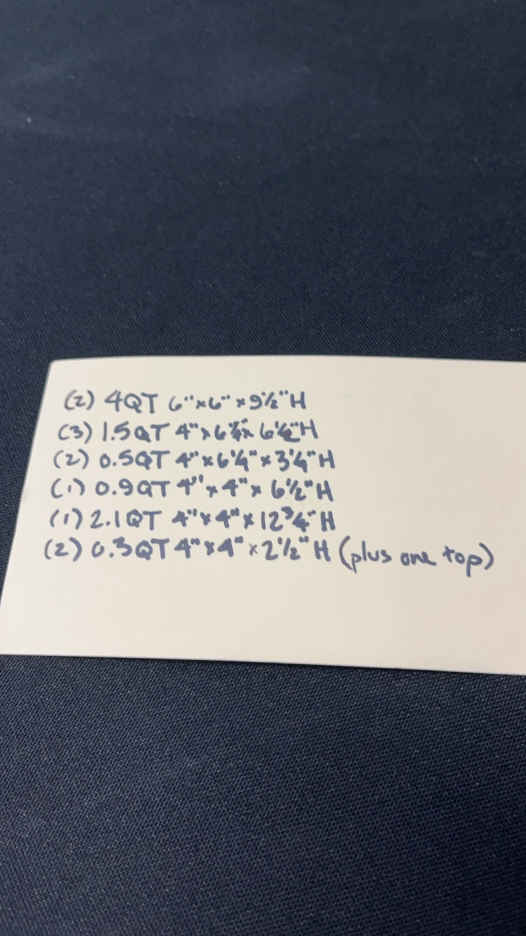 (2) 4QT 6"x6"x9½"H
(3) 1.5QT 4"x6¼"x6½"H
(2) 0.5QT 4"x6¼"x3¼"H
(1) 0.9QT 4"x4"x6½"H
(1) 2.1QT 4"x4"x12¾"H
(2) 0.3QT 4"x4"x2½"H (plus one top)